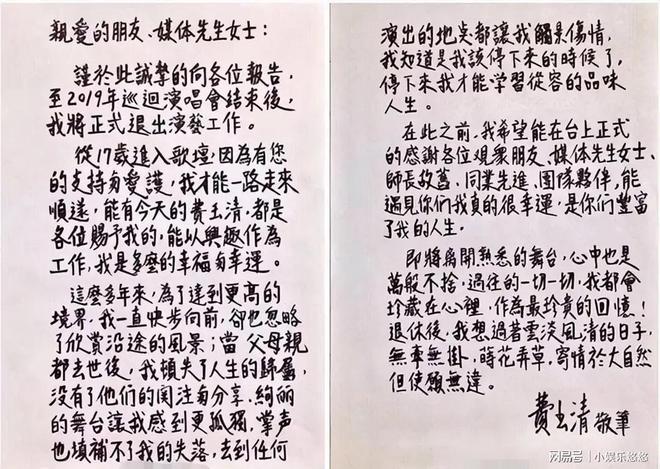 親愛的朋友、媒体先生女士：
謹於此誠摯的向各位報告，
至2019年巡迴演唱會結束後，
我將正式退出演藝工作。
從17歲進入歌壇，因為有您
的支持与愛護，我才能一路走來
順遂，能有今天的費玉清，都是
各位賜予我的，能以興趣作為
工作，我是多麼的幸福与幸運。
這麼多年來，為了達到更高的
境界，我一直快步向前，卻也忽略
了欣賞沿途的風景；當父母親
都去世後，我頓失了人生的歸屬，
沒有了他們的関注与分享，絢丽
的舞台讓我感到更孤獨，掌声
也填補不了我的失落，去到任何
演出的地点都讓我觸景傷情，
我知道是我該停下來的時候了，
停下來我才能学習從容的品味
人生。
在此之前，我希望能在台上正式
的感謝各位观衆朋友、媒体先生女士、
師長故舊、同業先進、團隊夥伴，能
遇見你們我真的很幸運，是你們豐富
了我的人生。
即將离開熟悉的舞台，心中也是
萬般不捨，過往的一切一切，我都會
珍藏在心裡，作為最珍貴的回憶！
退休後，我想過著雲淡風清的日子，
無牽無掛，蒔花弄草，寄情於大自然
但使願無違。
費玉清 敬筆
网易号 | 小娱乐悠悠